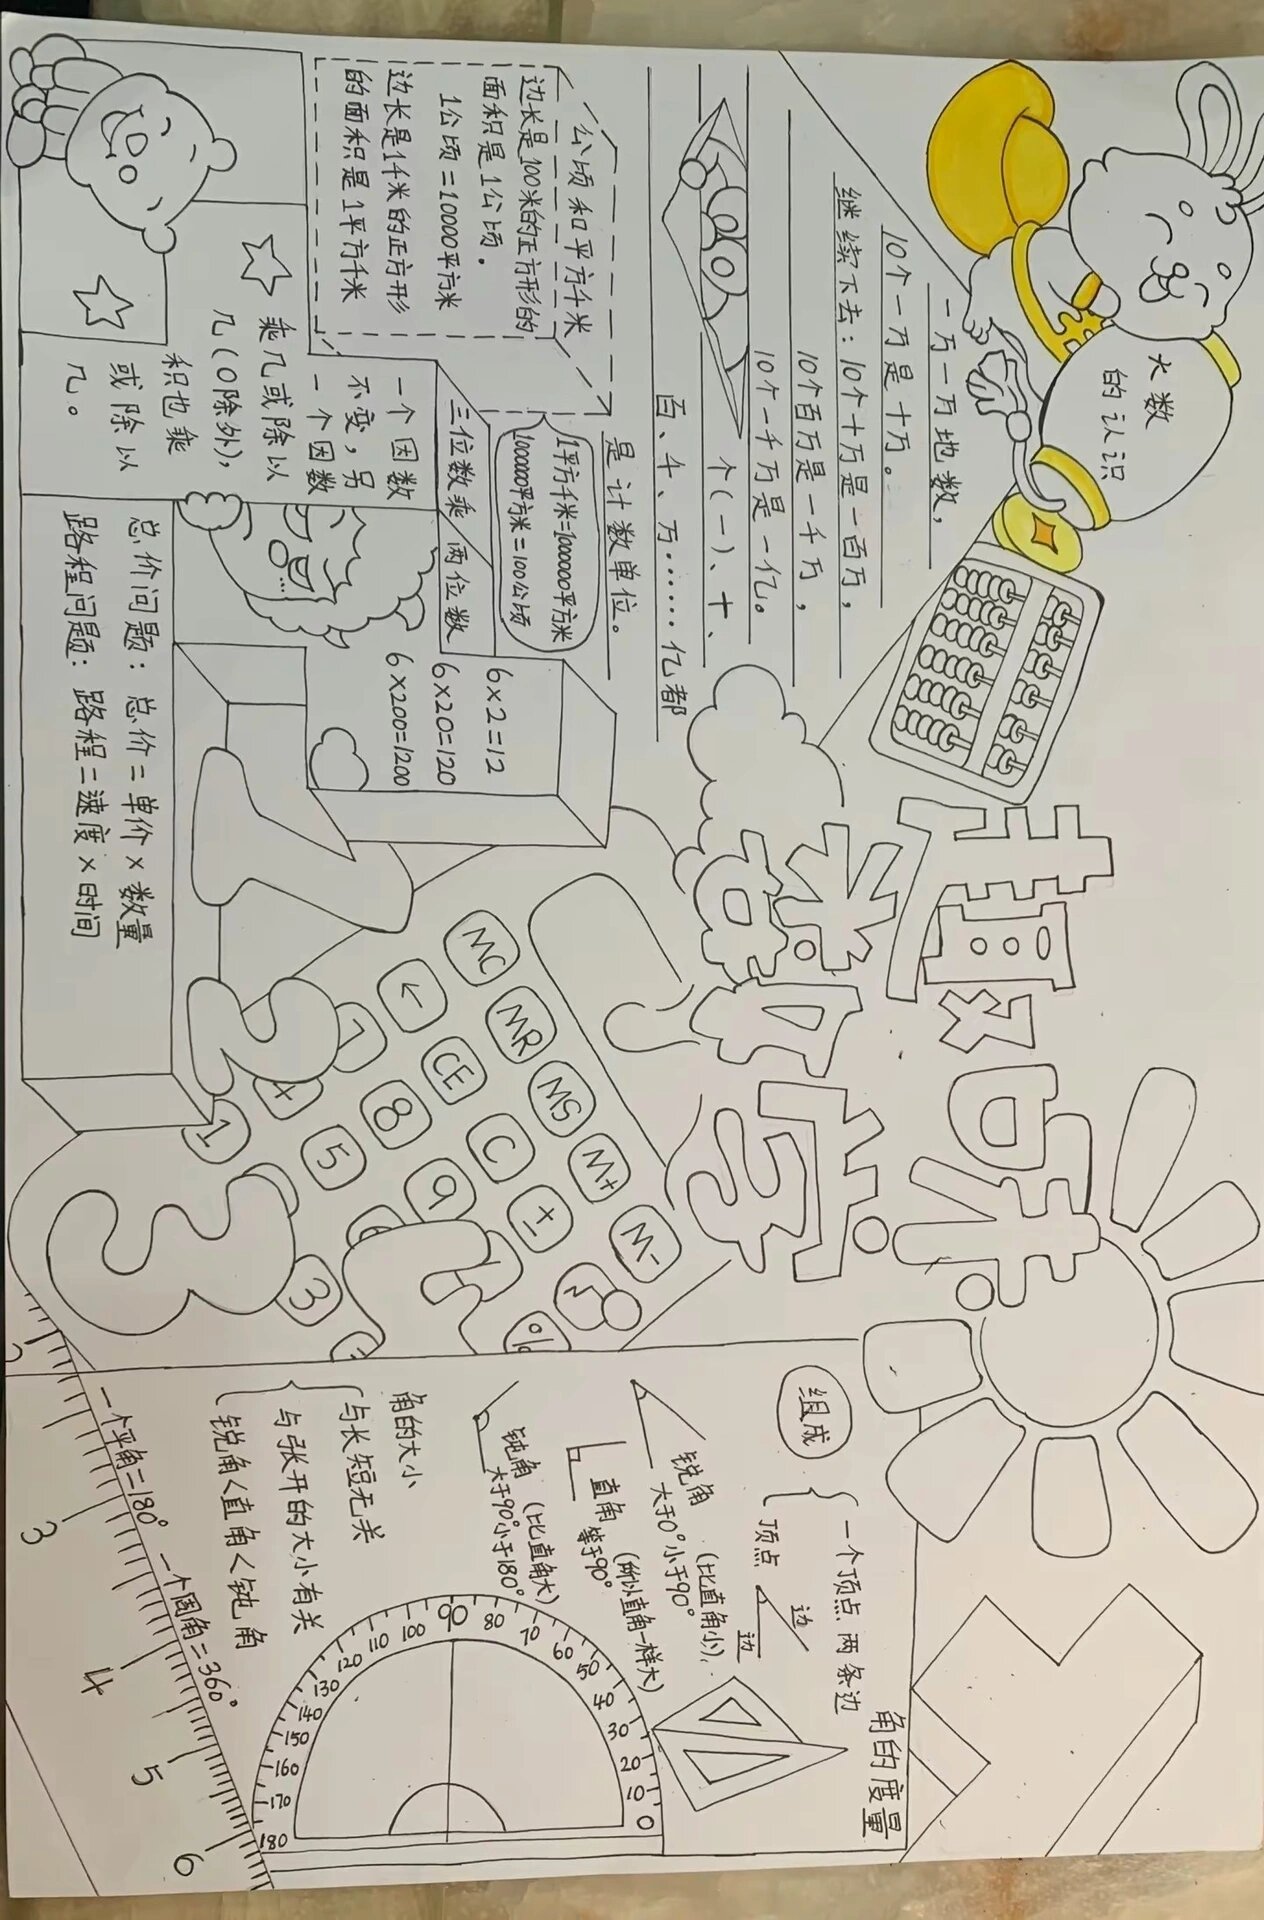 趣味
数学
大数
的认识
一万一万地数，
10个一万是十万。
继续下去：10个十万是一百万，
10个百万是一千万，
10个一千万是一亿。
个(一)、十、
百、千、万……亿都
是计数单位。
公顷和平方千米
边长是100米的正方形的
面积是1公顷。
1公顷=10000平方米
边长是1千米的正方形
的面积是1平方千米
1平方千米=1000000平方米
1000000平方米=100公顷
三位数乘两位数
6×2=12
6×20=120
6×200=1200
一个因数
不变，另
一个因数
乘几或除以
几(0除外)，
积也乘
或除以
几。
总价问题：总价=单价×数量
路程问题：路程=速度×时间
MC MR MS M+ M-
← CE C ±
7 8 9
4 5 6
1 3
%
1
2
3
角的度量
组成
一个顶点 两条边
顶点
边
边
锐角 (比直角小)
大于0°小于90°
直角 (所以直角一样大)
等于90°
钝角 (比直角大)
大于90°小于180°
角的大小
与长短无关
与张开的大小有关
锐角<直角<钝角
一个平角=180° 一个周角=360°
0 10 20 30 40 50 60 70 80 90 100 110 120 130 140 150 160 170 180
2 3 4 5 6